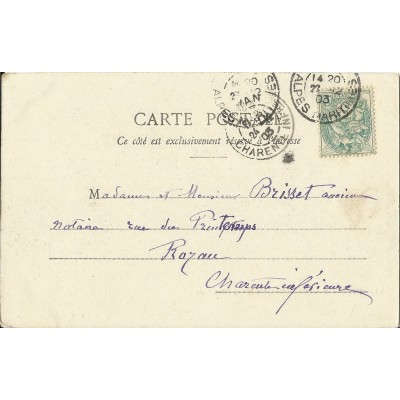 14 20
03
ALPES MARITIMES
CARTE POSTALE
Ce côté est exclusivement réservé à l'adresse
CHARENTE INFRE
24
03
Madame et Monsieur Brisset ancien
notaire rue des Printemps
Royan
Charente inférieure